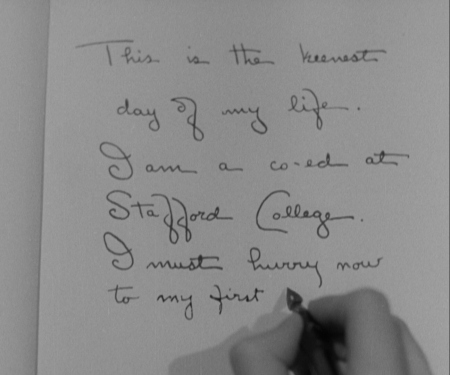 This is the keenest
day of my life.
I am a co-ed at
Stafford College.
I must hurry now
to my first